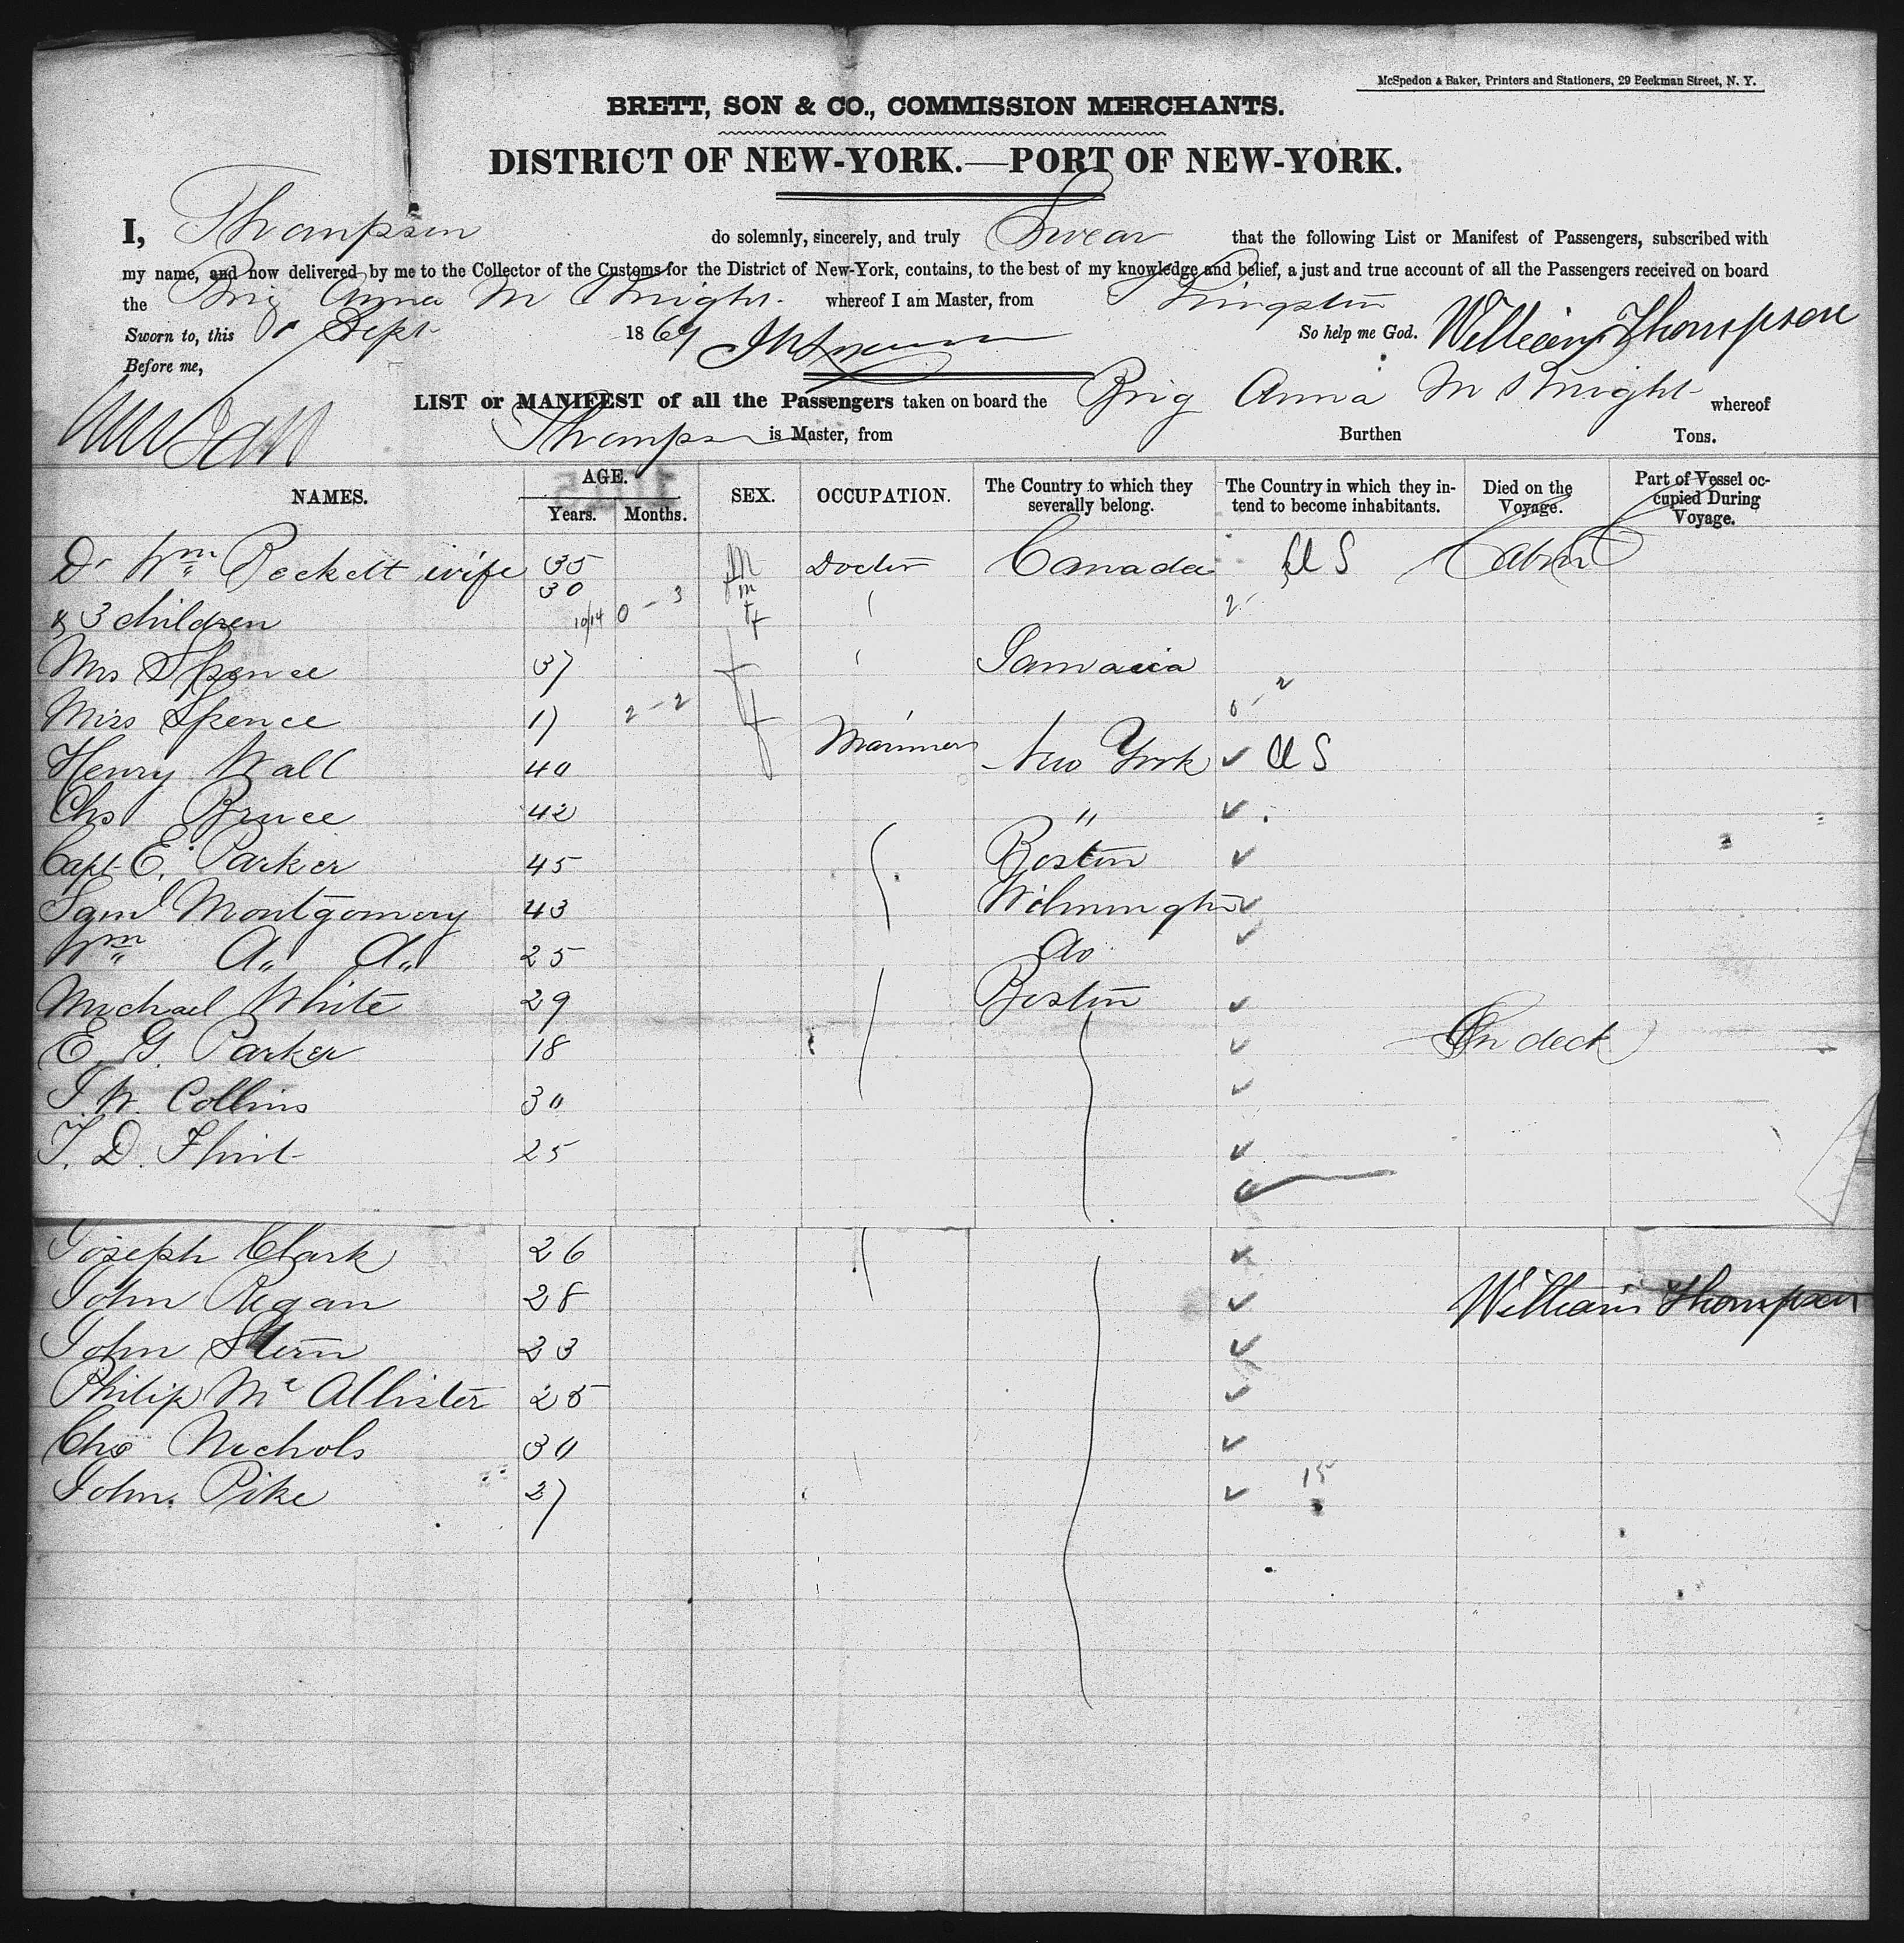 McSpedon & Baker, Printers and Stationers, 29 Beekman Street, N. Y.
BRETT, SON & CO., COMMISSION MERCHANTS.
DISTRICT OF NEW-YORK.—PORT OF NEW-YORK.
I, Thompson do solemnly, sincerely, and truly Swear that the following List or Manifest of Passengers, subscribed with
my name, and now delivered by me to the Collector of the Customs for the District of New-York, contains, to the best of my knowledge and belief, a just and true account of all the Passengers received on board
the Brig Anna M Knight whereof I am Master, from Kingston
Sworn to, this Sept 1869 So help me God. William Thompson
Before me,
LIST or MANIFEST of all the Passengers taken on board the Brig Anna M Knight whereof
Thompson is Master, from Burthen Tons.
NAMES. AGE. Years. Months. SEX. OCCUPATION. The Country to which they severally belong. The Country in which they intend to become inhabitants. Died on the Voyage. Part of Vessel occupied During Voyage.
Dr Wm Beckett wife 35 m Doctor Canada U S Cabin
30
& 3 children 10/14 0 - 3 m f f 2-
Mrs Spence 37 f Jamaica
Miss Spence 17 2 - 2 f 0 - 2
Henry Wall 40 Mariners New York ✓ U S
Chs Bruce 42 " ✓
Capt E. Parker 45 Boston ✓
Saml Montgomery 43 Wilmington ✓
Wm Do Do 25 do ✓
Michael White 29 Boston ✓
E. G. Parker 18 ✓ On deck
J. W. Collins 30 ✓
T. D. Flint 25 ✓
Joseph Clark 26 ✓
John Regan 28 ✓ William Thompson
John Stern 23 ✓
Philip Mc Allister 25 ✓
Chs Nichols 30 ✓
John Pike 27 ✓ 15